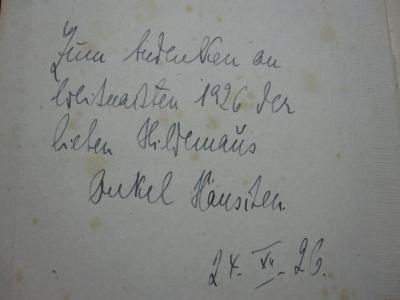 Zum Andenken an
Weihnachten 1926 der
lieben Hildemaus
Onkel Hänschen
24. XII. 26.